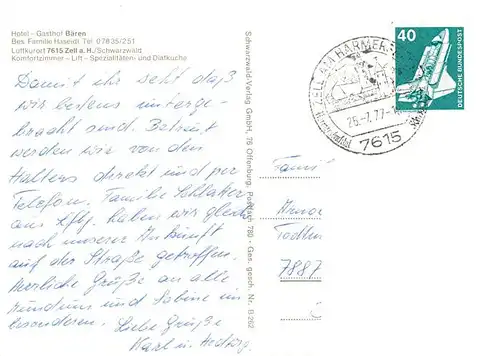 Hotel - Gasthof Bären
Bes. Familie Haseidl Tel 07835/251
Luftkurort 7615 Zell a. H./Schwarzwald
Komfortzimmer – Lift – Spezialitäten- und Diätküche
Damit ihr seht daß
wir bestens unterge-
bracht sind. Betreut
werden wir von den
Halters direkt und per
Telefon. Familie Schlatter
aus haben wir gleich
nach unserer Ankunft
auf der Straße getroffen.
Herzliche Grüße an alle
und Sabine im
besonderen. Liebe Grüße
Karl u. Hedwig.
Schwarzwald-Verlag GmbH, 76 Offenburg, Postfach 780 - Ges. gesch. Nr. B 262
40
DEUTSCHE BUNDESPOST
ZELL AM HARMERSBACH
25.-7.77-
7615
Fami
Todtm
7887